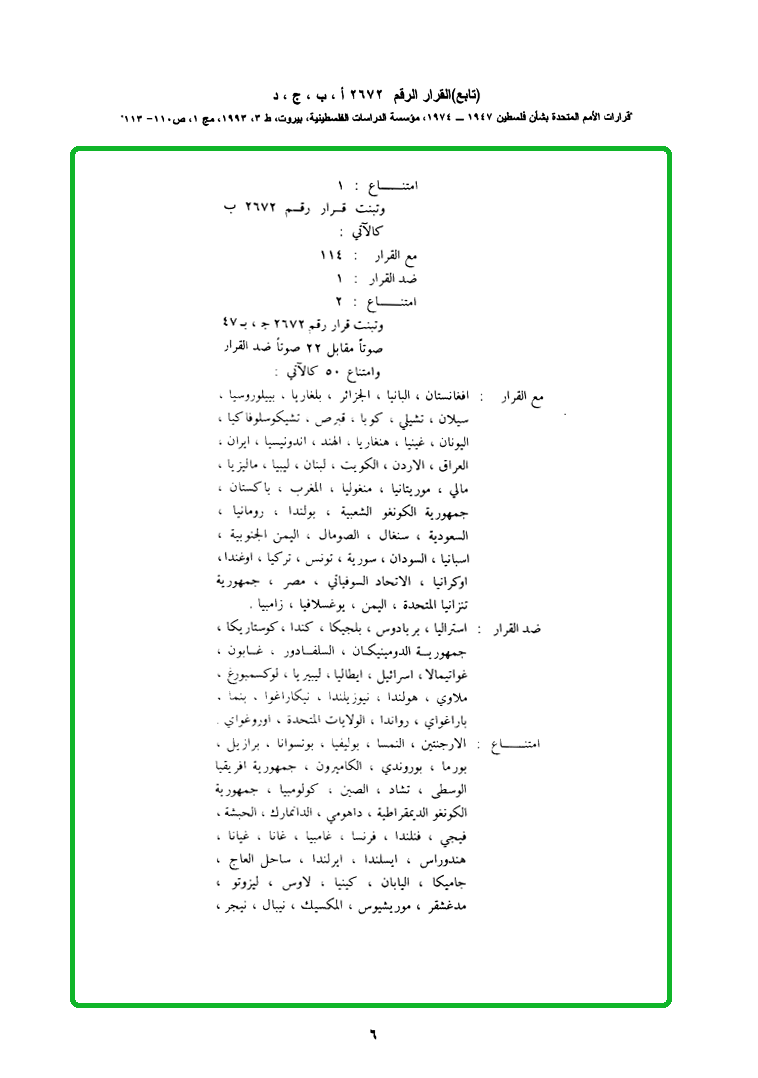 (تابع)القرار الرقم ٢٦٧٢ أ ، ب ، ج ، د
"قرارات الأمم المتحدة بشأن فلسطين ١٩٤٧ ــ ١٩٧٤، مؤسسة الدراسات الفلسطينية، بيروت، ط ٣، ١٩٩٣، مج ١، ص١١٠– ١١٣"
امتنــــاع : ١
وتبنت قـرار رقـم ٢٦٧٢ ب
كالآتي :
مع القرار : ١١٤
ضد القرار : ١
امتنــــاع : ٢
وتبنت قرار رقم ٢٦٧٢ ج ، بـ ٤٧
صوتاً مقابل ٢٢ صوتاً ضد القرار
وامتناع ٥٠ كالآتي :
مع القرار : افغانستان ، البانيا ، الجزائر ، بلغاريا ، بييلوروسيا ،
سيلان ، تشيلي ، كوبا ، قبرص ، تشيكوسلوفاكيا ،
اليونان ، غينيا ، هنغاريا ، الهند ، اندونيسيا ، ايران ،
العراق ، الاردن ، الكويت ، لبنان ، ليبيا ، ماليزيا ،
مالي ، موريتانيا ، منغوليا ، المغرب ، باكستان ،
جمهورية الكونغو الشعبية ، بولندا ، رومانيا ،
السعودية ، سنغال ، الصومال ، اليمن الجنوبية ،
اسبانيا ، السودان ، سورية ، تونس ، تركيا ، اوغندا ،
اوكرانيا ، الاتحاد السوفياتي ، مصر ، جمهورية
تنزانيا المتحدة ، اليمن ، يوغسلافيا ، زامبيا .
ضد القرار : استراليا ، بربادوس ، بلجيكا ، كندا ، كوستاريكا ،
جمهوريـة الدومينيكـان ، السلفـادور ، غـابون ،
غواتيمالا ، اسرائيل ، ايطاليا ، ليبيريا ، لوكسمبورغ ،
ملاوي ، هولندا ، نيوزيلندا ، نيكاراغوا ، بنما ،
باراغواي ، رواندا ، الولايات المتحدة ، اوروغواي .
امتنــــاع : الارجنتين ، النمسا ، بوليفيا ، بوتسوانا ، برازيل ،
بورما ، بوروندي ، الكاميرون ، جمهورية افريقيا
الوسطى ، تشاد ، الصين ، كولومبيا ، جمهورية
الكونغو الديمقراطية ، داهومي ، الدانمارك ، الحبشة ،
فيجي ، فنلندا ، فرنسا ، غامبيا ، غانا ، غيانا ،
هندوراس ، ايسلندا ، ايرلندا ، ساحل العاج ،
جاميكا ، اليابان ، كينيا ، لاوس ، ليزوتو ،
مدغشقر ، موريشيوس ، المكسيك ، نيبال ، نيجر ،
٦